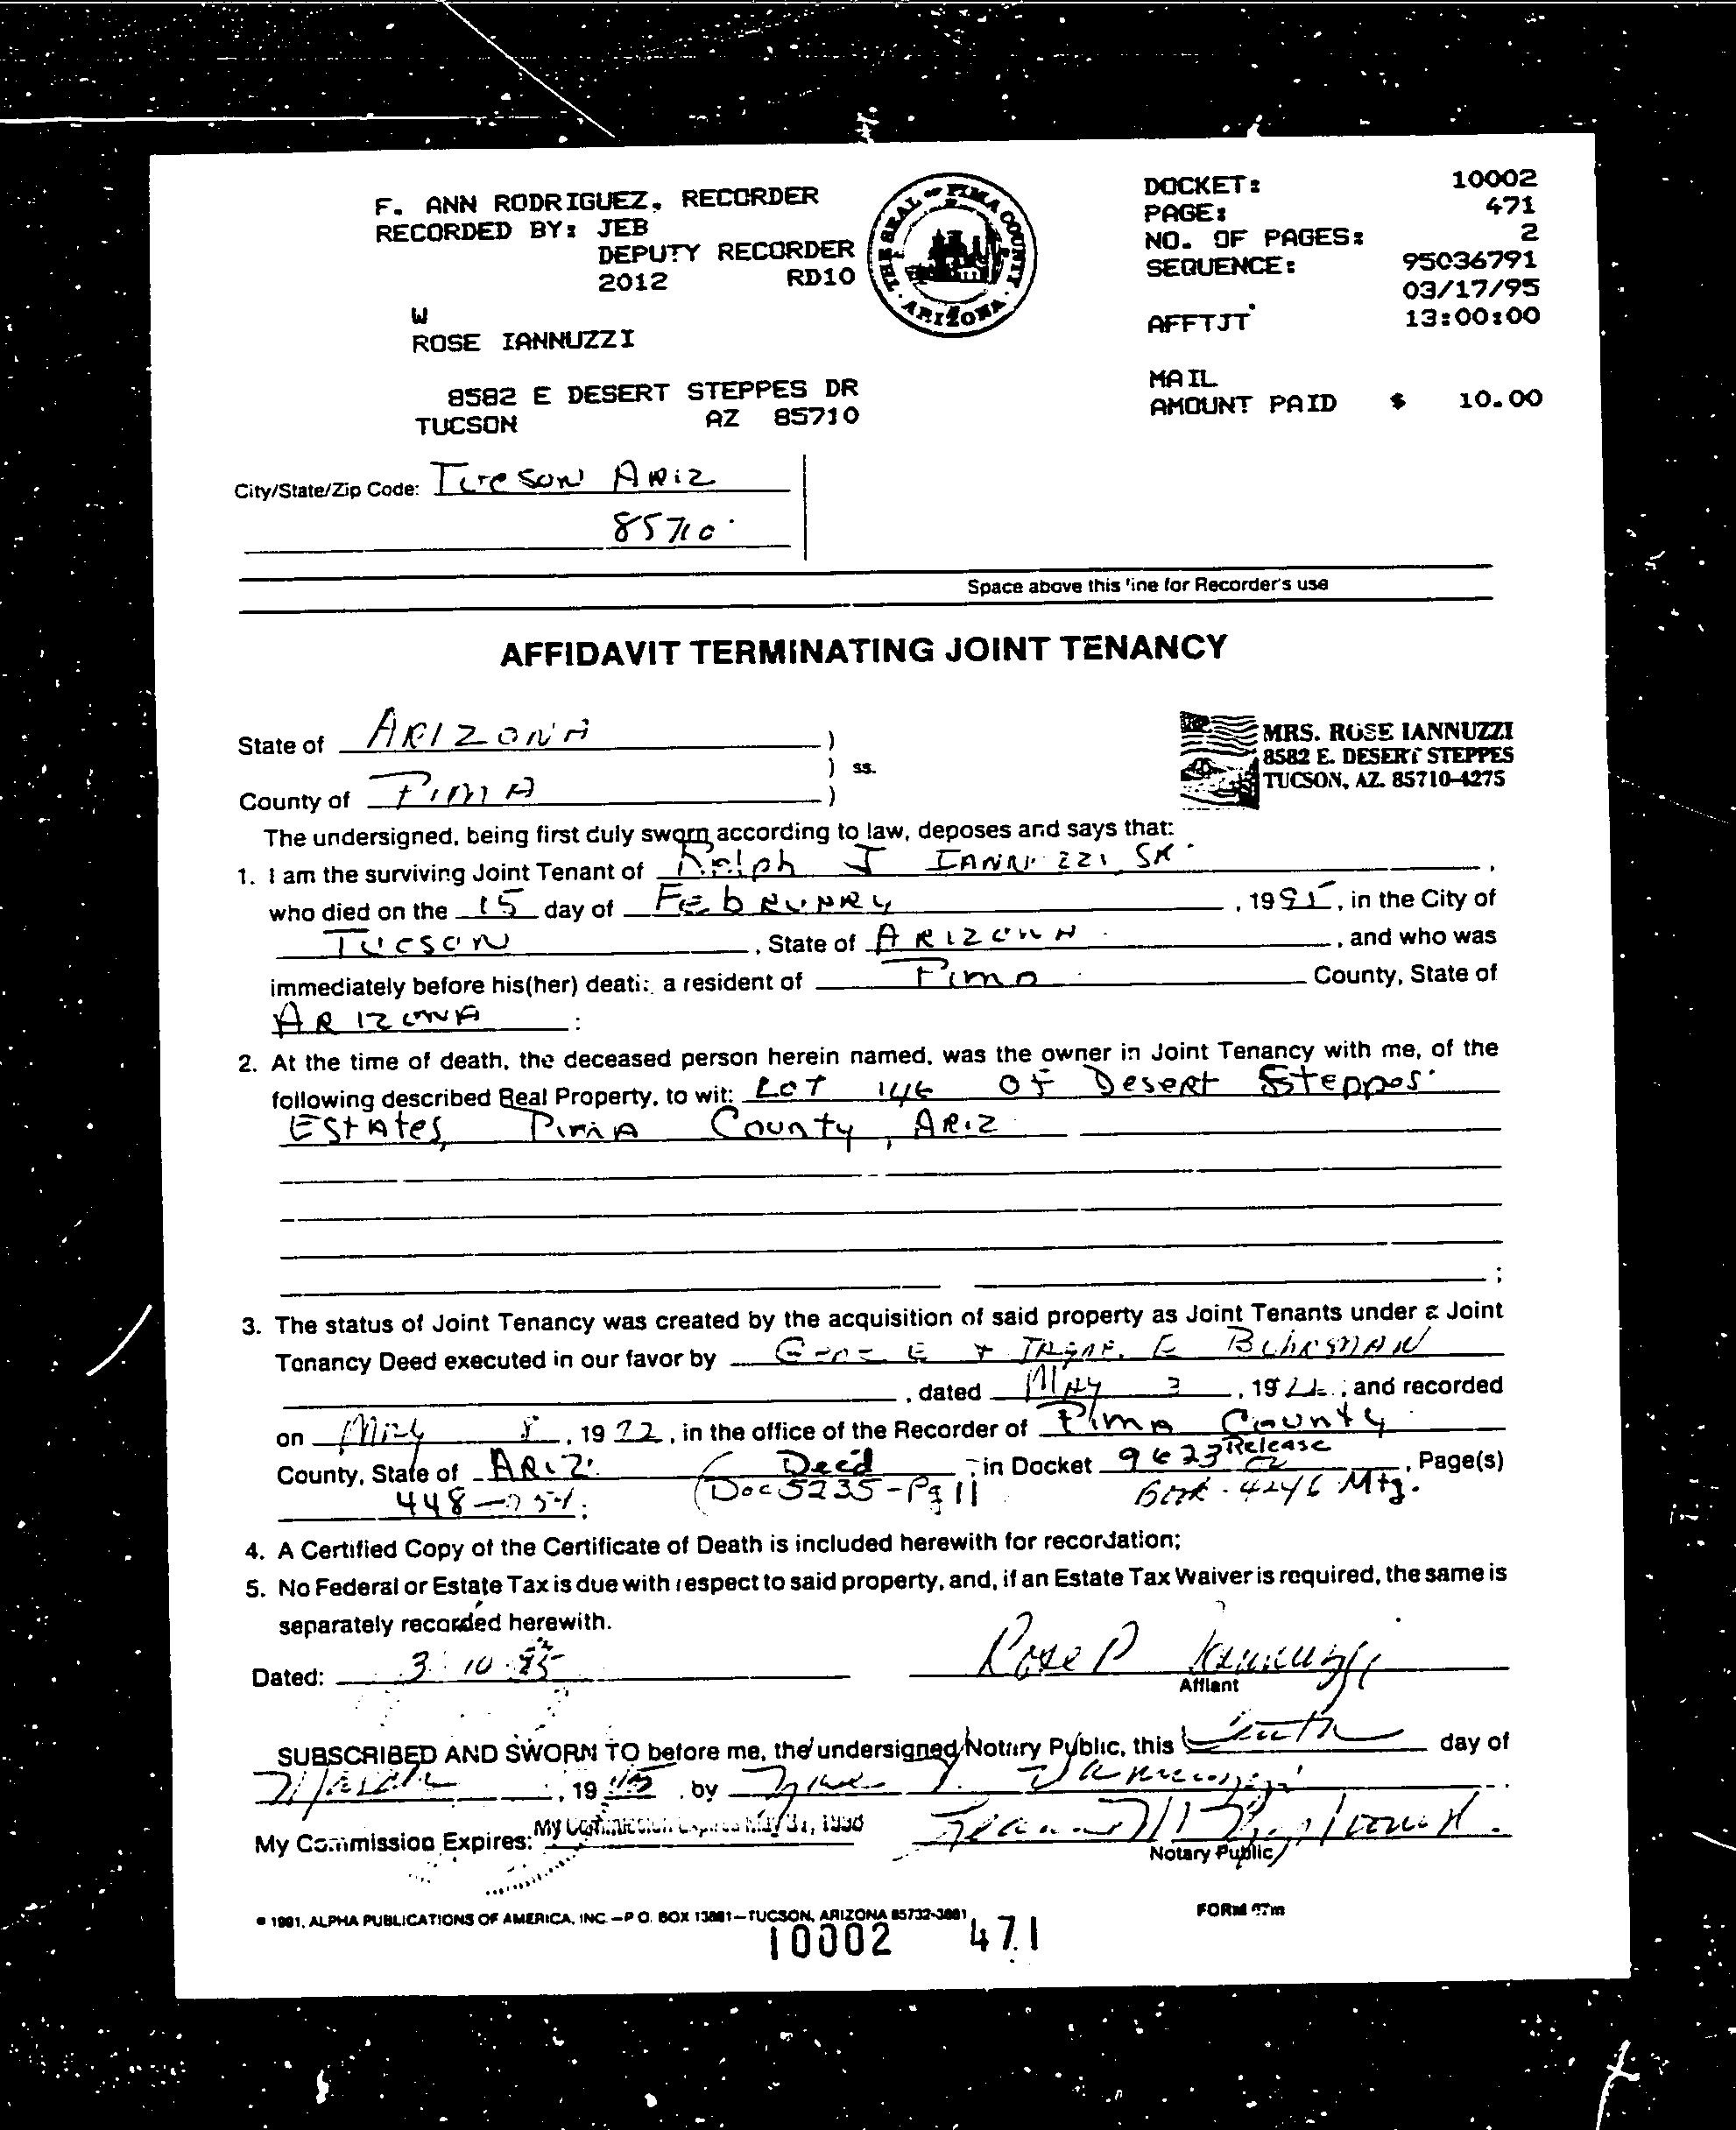 F. ANN RODRIGUEZ, RECORDER
RECORDED BY: JEB
DEPUTY RECORDER
2012 RD10
W
ROSE IANNUZZI
8582 E DESERT STEPPES DR
TUCSON AZ 85710
THE SEAL OF PIMA COUNTY · ARIZONA ·
DOCKET: 10002
PAGE: 471
NO. OF PAGES: 2
SEQUENCE: 95036791
03/17/95
AFFTJT 13:00:00
MAIL
AMOUNT PAID $ 10.00
City/State/Zip Code: Tucson Ariz
85710
Space above this line for Recorder's use
AFFIDAVIT TERMINATING JOINT TENANCY
State of ARIZONA )
) ss.
County of Pima )
MRS. ROSE IANNUZZI
8582 E. DESERT STEPPES
TUCSON, AZ. 85710-4275
The undersigned, being first duly sworn according to law, deposes and says that:
1. I am the surviving Joint Tenant of Ralph J IANNUZZI SR.,
who died on the 15 day of February, 1995, in the City of
Tucson, State of Arizona, and who was
immediately before his(her) death a resident of Pima County, State of
Arizona:
2. At the time of death, the deceased person herein named, was the owner in Joint Tenancy with me, of the
following described Real Property, to wit: Lot 146 of Desert Steppes
Estates, Pima County, Ariz
;
3. The status of Joint Tenancy was created by the acquisition of said property as Joint Tenants under a Joint
Tenancy Deed executed in our favor by E &
, dated May 3, 19, and recorded
on May 8, 1972, in the office of the Recorder of Pima County
County, State of Ariz. (Deed in Docket 9623 Release, Page(s)
448 (Doc 5235-Pg 11 Book - 4246 Mtg.
4. A Certified Copy of the Certificate of Death is included herewith for recordation;
5. No Federal or Estate Tax is due with respect to said property, and, if an Estate Tax Waiver is required, the same is
separately recorded herewith.
Dated: 3 10 95 Rose P Iannuzzi
Affiant
SUBSCRIBED AND SWORN TO before me, the undersigned Notary Public, this day of
March, 1995 by Iannuzzi
My Commission Expires: My Commission Expires May 31,
Notary Public
© 1991, ALPHA PUBLICATIONS OF AMERICA, INC.—P.O. BOX 13881—TUCSON, ARIZONA 85732-3881
FORM
10002 471